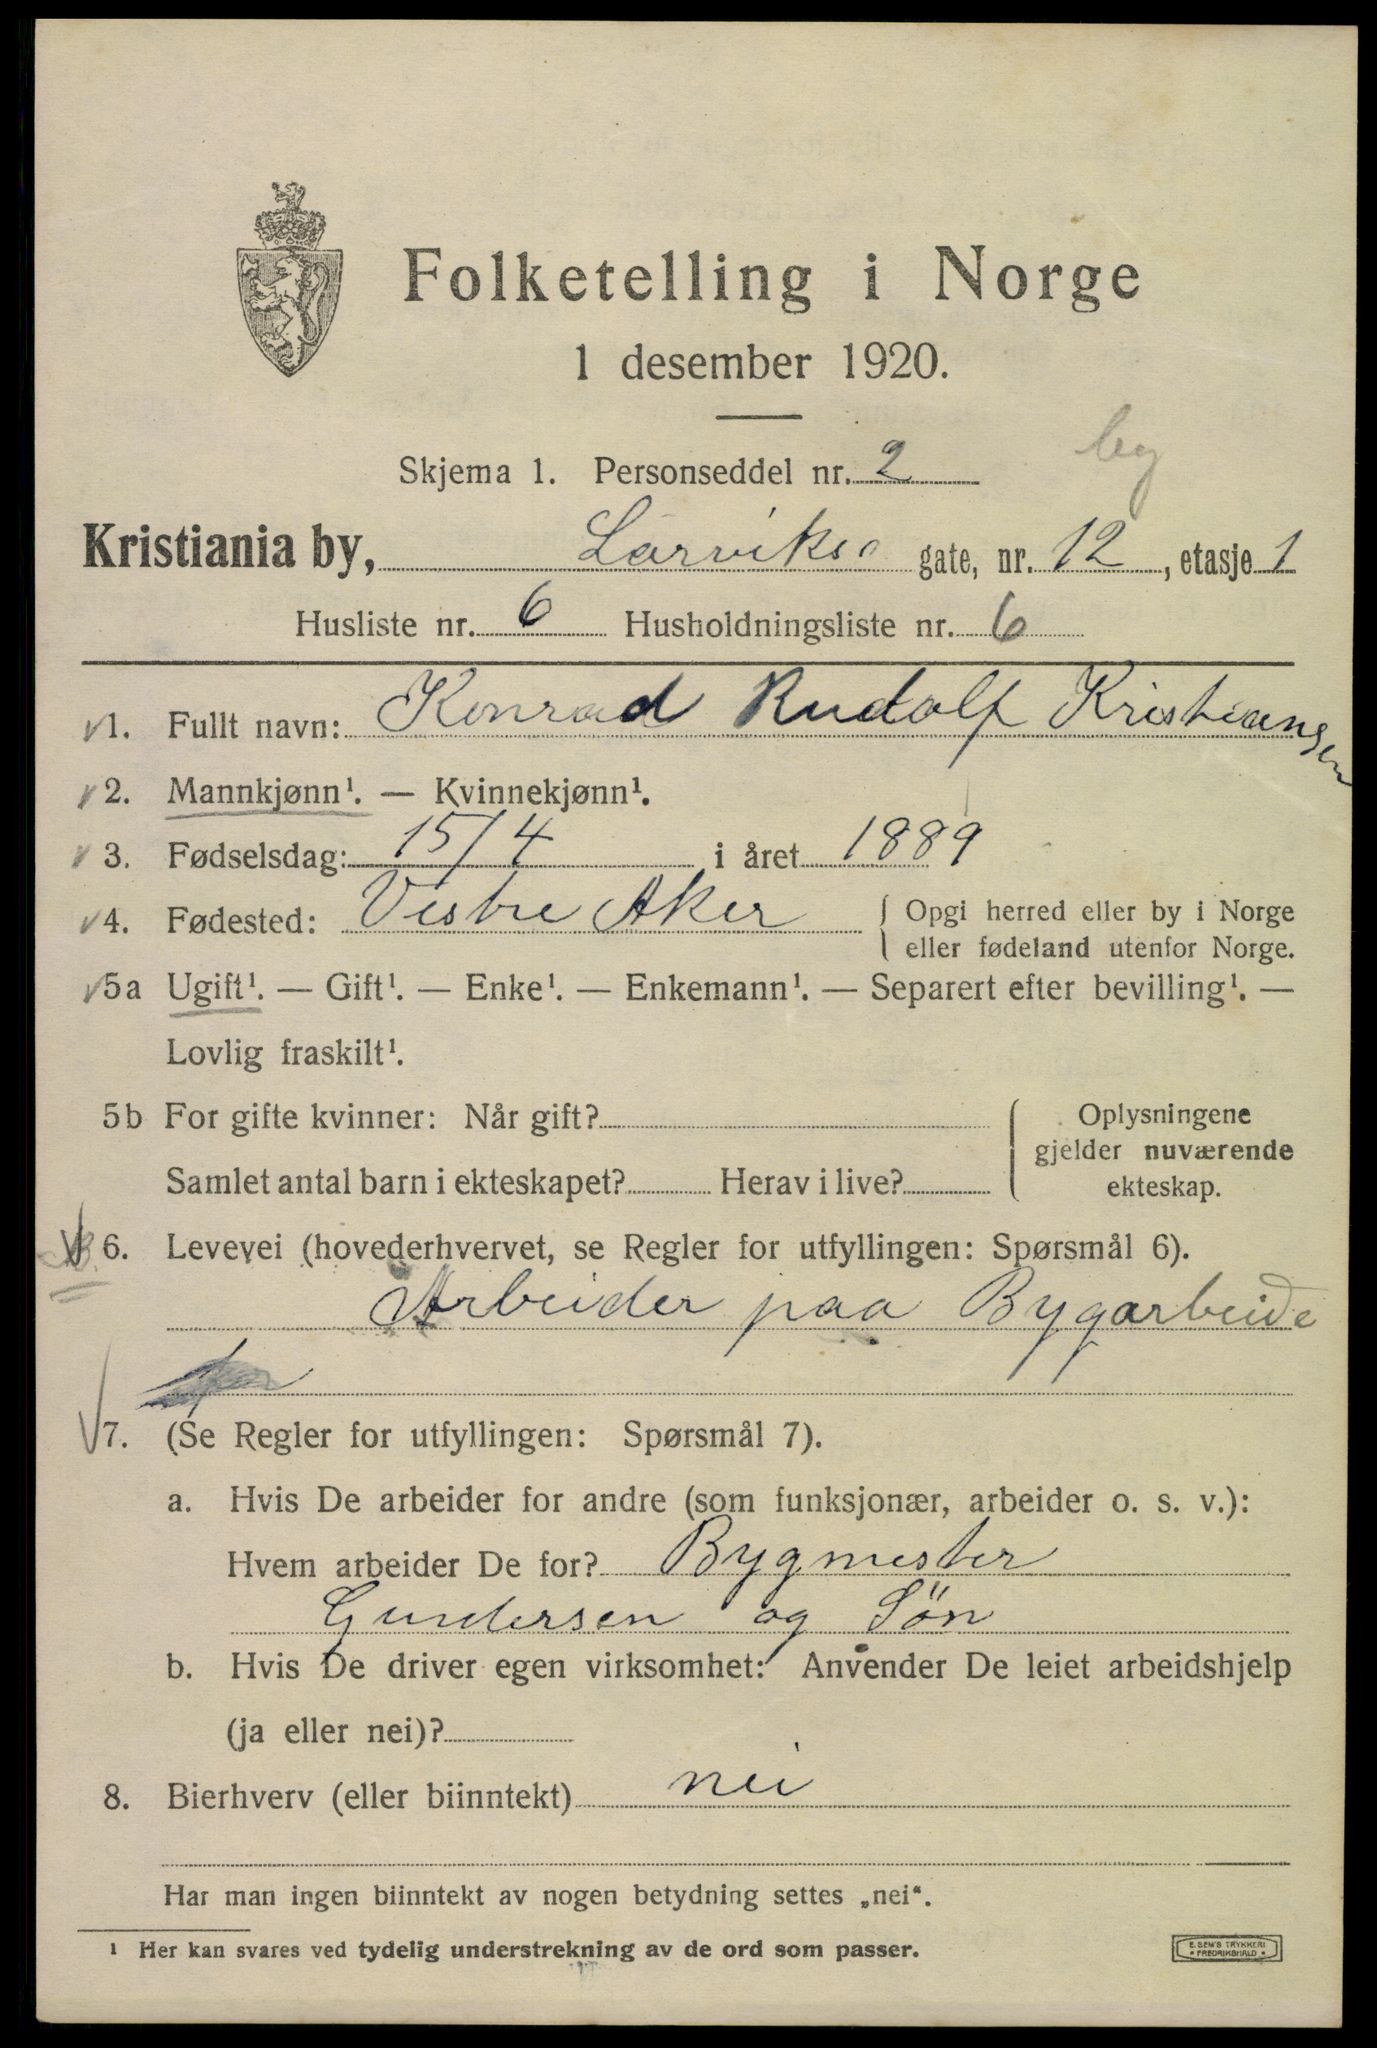 Folketelling i Norge
1 desember 1920.
Skjema 1. Personseddel nr. 2
Kristiania by, Larviks gate, nr. 12, etasje 1
Husliste nr. 6 Husholdningsliste nr. 6
1. Fullt navn: Konrad Rudolf Kristiansen
2. Mannkjønn¹. — Kvinnekjønn¹.
3. Fødselsdag: 15/4 i året 1889
4. Fødested: Vestre Aker { Opgi herred eller by i Norge
eller fødeland utenfor Norge.
5a Ugift¹. — Gift¹. — Enke¹. — Enkemann¹. — Separert efter bevilling¹. —
Lovlig fraskilt¹.
5b For gifte kvinner: Når gift? { Oplysningene
gjelder nuværende
Samlet antal barn i ekteskapet? Herav i live? ekteskap.
6. Levevei (hovederhvervet, se Regler for utfyllingen: Spørsmål 6).
Arbeider paa Bygarbeide
7. (Se Regler for utfyllingen: Spørsmål 7).
a. Hvis De arbeider for andre (som funksjonær, arbeider o. s. v.):
Hvem arbeider De for? Bygmester
Gundersen og Sön
b. Hvis De driver egen virksomhet: Anvender De leiet arbeidshjelp
(ja eller nei)?
8. Bierhverv (eller biinntekt) nei
Har man ingen biinntekt av nogen betydning settes „nei“.
¹ Her kan svares ved tydelig understrekning av de ord som passer.
E. SEM'S TRYKKERI
FREDRIKSHALD